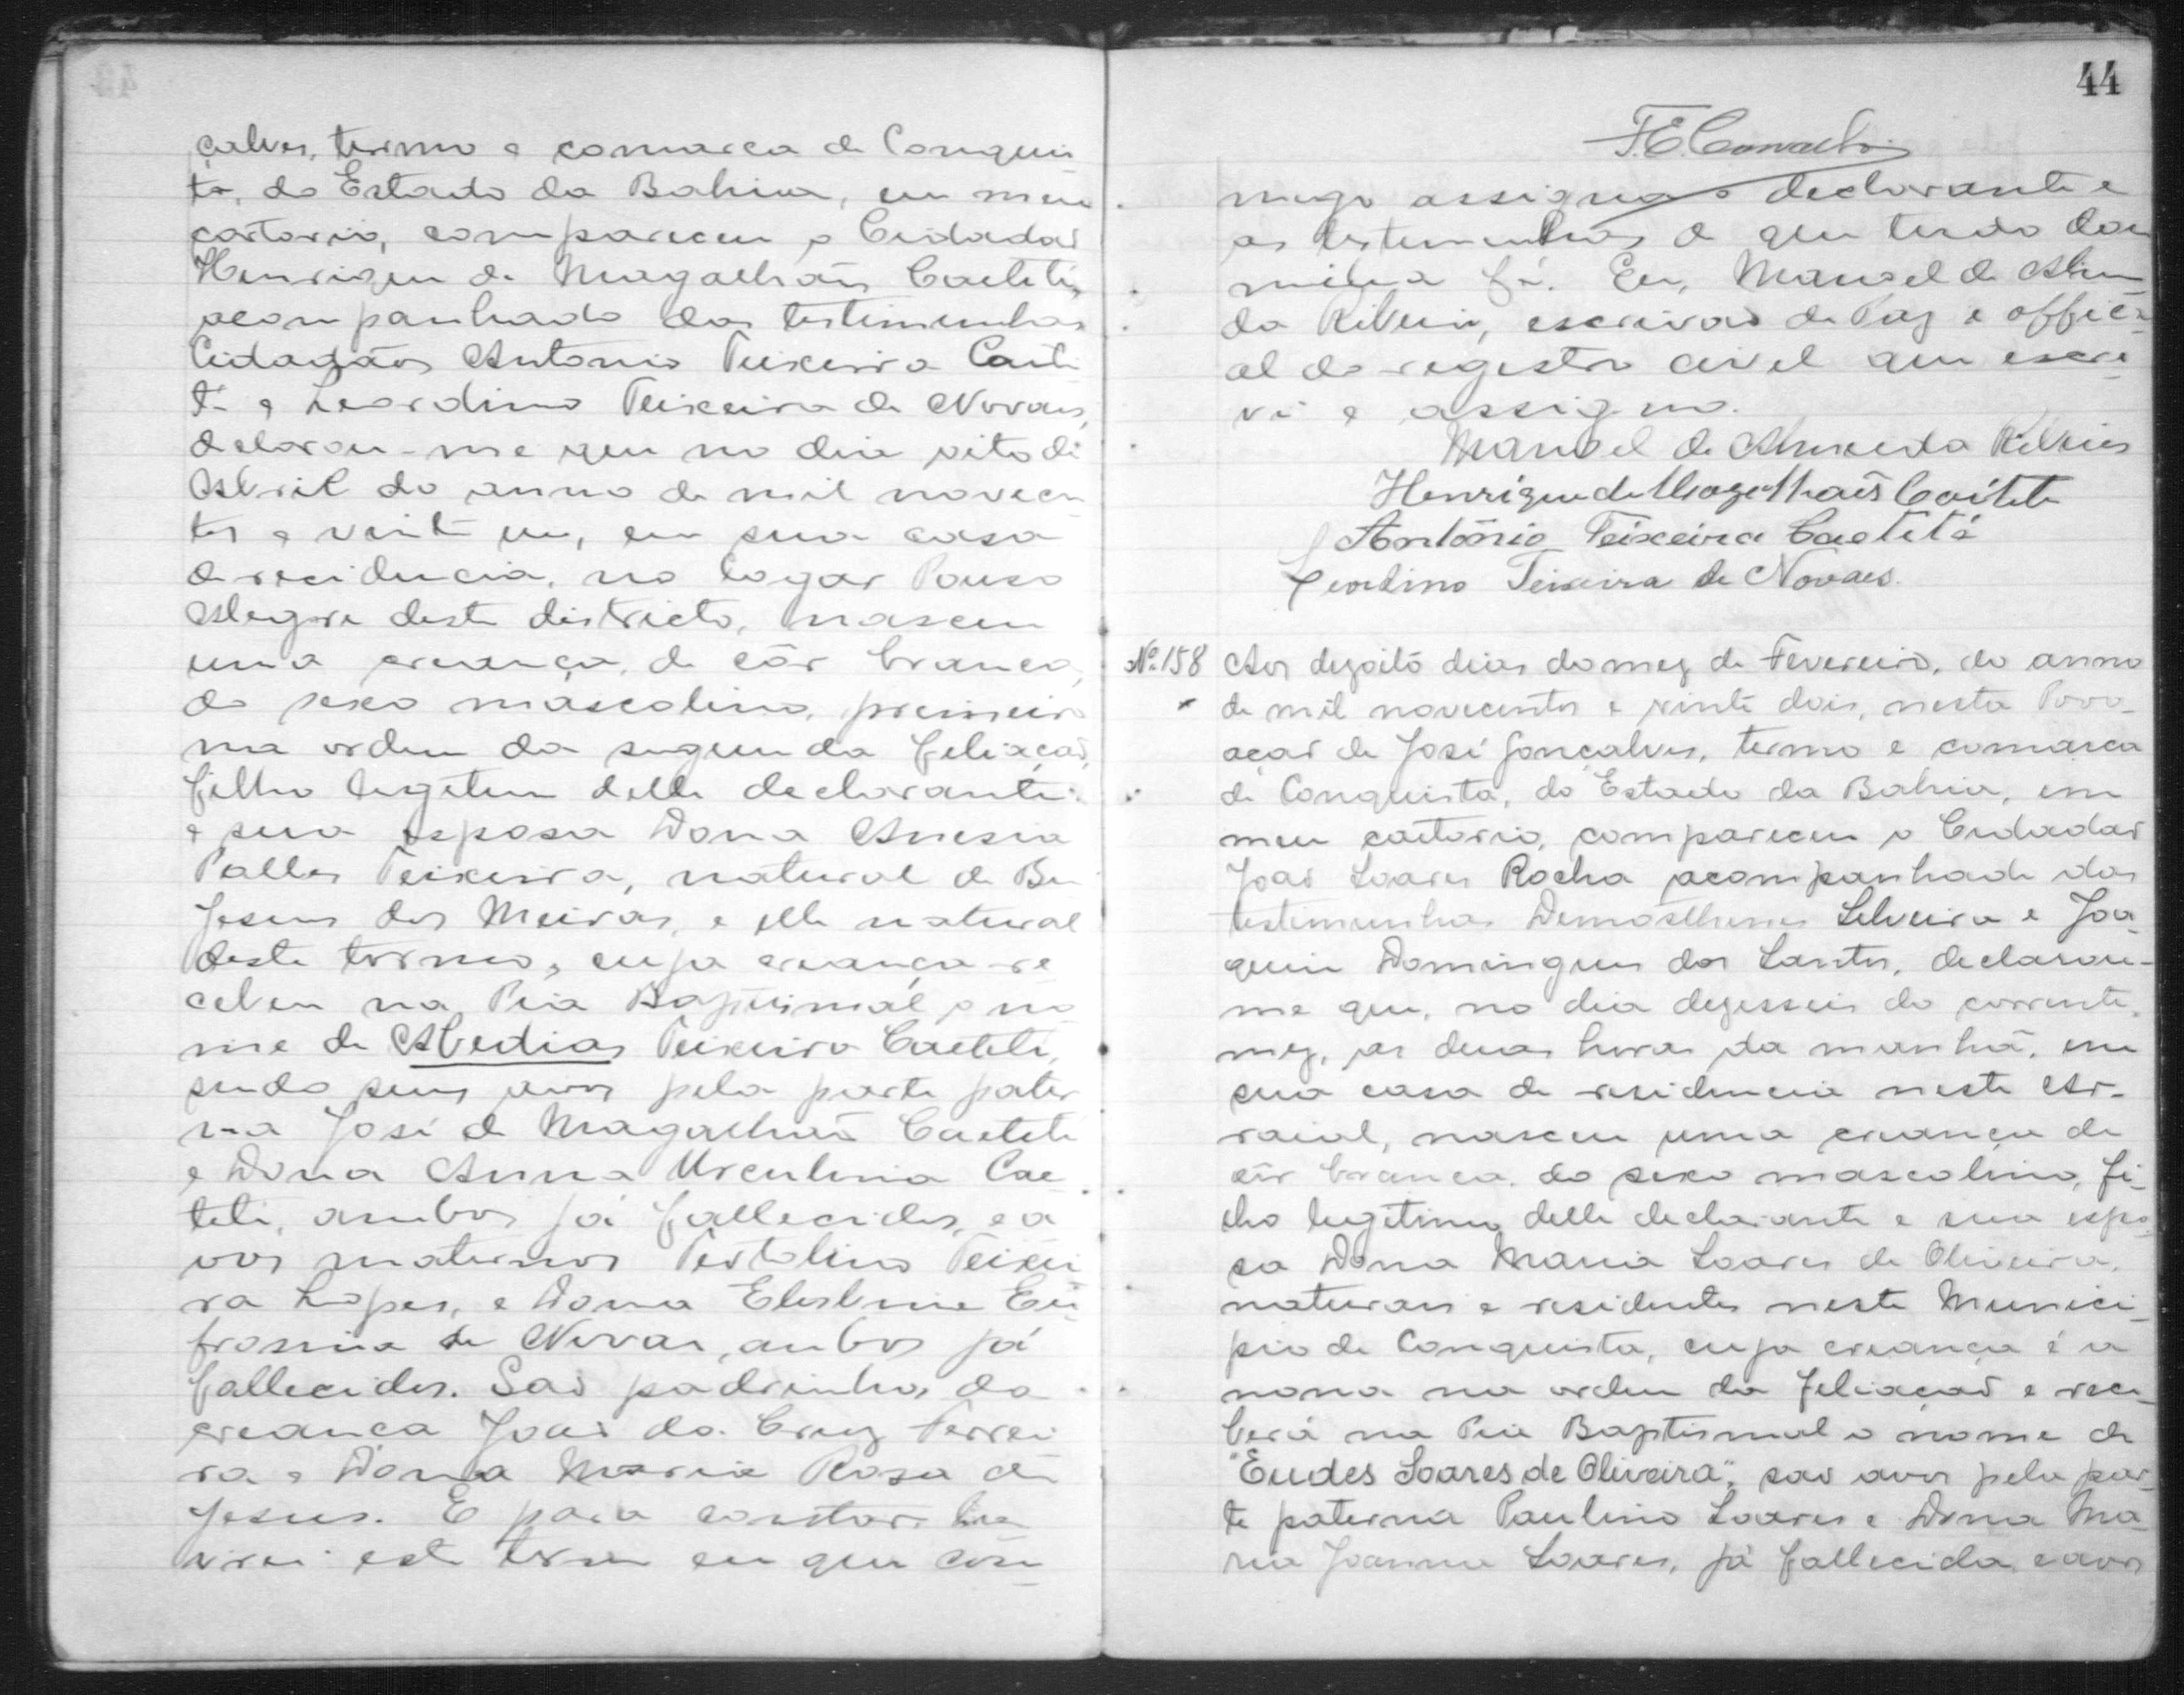 çalves, termo e comarca de Conquis
ta, do Estado da Bahia, em meu
cartorio, compareceu o Cidadão
Henrique de Magalhães Caetité,
acompanhado das testimunhas
Cidadãos Antonio Teixeira Caeti
té e Leordino Teixeira de Novaes,
declarou-me que no dia oito de
Abril do anno de mil novecen
tos e vinte um, em sua casa
de recidencia, no logar Pouso
Alegre deste districto, nasceu
uma creança, de côr branca,
do sexo mascolino, primeiro
na ordem da segunda feliação,
filho legitimo delle declarante
e sua esposa Dona Anesia
Telles Teixeira, natural de Bu
Jesus dos Meiras, e elle natural
deste termo, cuja creança re
cebeu na Pia Baptismal o no
me de Abedias Teixeira Caetité,
sendo seus avos pela parte pater
na José de Magalhães Caetité
e Dona Anna Urculina Cae
tité, ambos já fallecidos, e a
vos maternos Teotolino Teixei
ra Lopes, e Dona Elesbina Eu
frosina de Novaes, ambos já
fallecidos. São padrinhos da
creança João da Cruz Ferrei
ra e Dona Maria Rosa de
Jesus. E para constar la
vrei este termo em que com
44
F. E. Carvalho
migo assigna o declarante e
as testemunhas do que tendo dou
minha fé. Eu, Manoel de Almei
da Ribeiro, escrivão de Paz e offici
al do registro civel que escre
vi e assigno.
Manoel de Almeida Ribeiro
Henrique de Magalhães Caiteté
Antônio Teixeira Caetité
Leordino Teixeira de Novaes.
Nº 158 Aos dezoito dias do mez de Fevereiro, do anno
de mil novecentos e vinte dois, nesta Povo-
ação de José Gonçalves, termo e comarca
de Conquista, do Estado da Bahia, em
meu cartorio, compareceu o Cidadão
João Soares Rocha acompanhado das
testimunhas Demosthenes Silveira e Joa-
quim Domingues dos Santos, declarou-
me que, no dia dezesseis do corrente
mez, as duas horas da manhã, em
sua casa de residencia neste Ar-
raial, nasceu uma creança de
côr branca, do sexo mascolino, fi-
lho legitimo delle declarante e sua espo-
sa Dona Maria Soares de Oliveira,
naturaes e residentes neste Munici-
pio de Conquista, cuja creança é a
nona na ordem da feliação e rece-
berá na Pia Baptismal o nome de
"Eudes Soares de Oliveira", são avos pela par-
te paterna Paulino Soares e Dona Ma-
ria Joanna Soares, já fallecida e avos